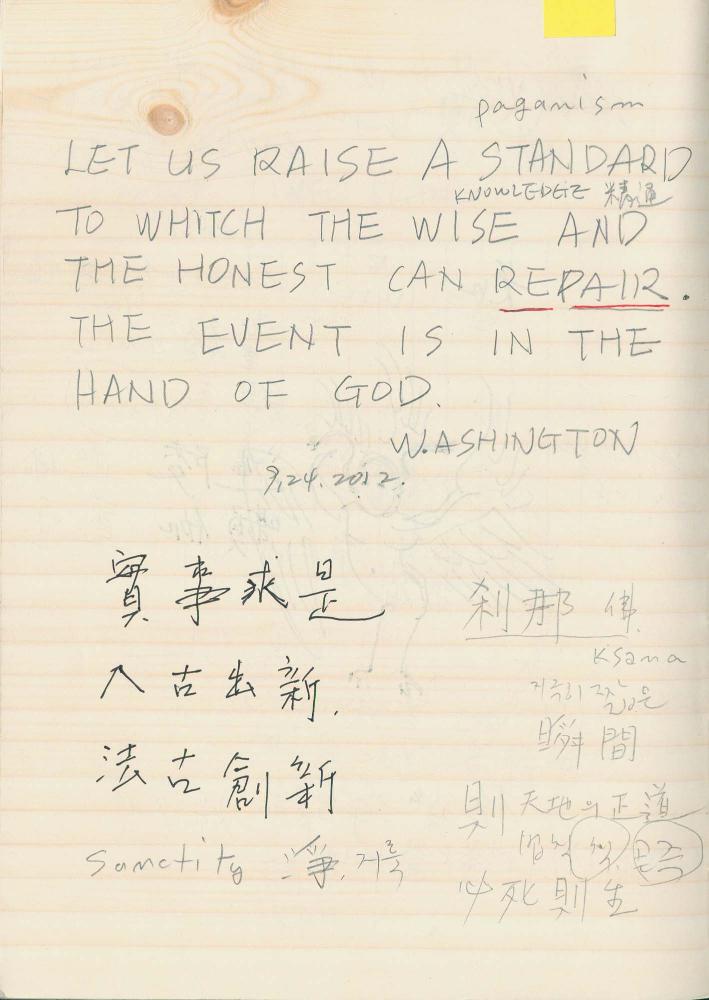 paganism
LET US RAISE A STANDARD
KNOWLEDGE 精通
TO WHITCH THE WISE AND
THE HONEST CAN REPAIR.
THE EVENT IS IN THE
HAND OF GOD.
W.ASHINGTON
9.24.2012.
實事求是
入古出新.
法古創新
Sanctity 淨. 거룩
刹那 佛
Ksana
지극히 짧은
瞬間
則 天地의 正道
법칙
必死則生